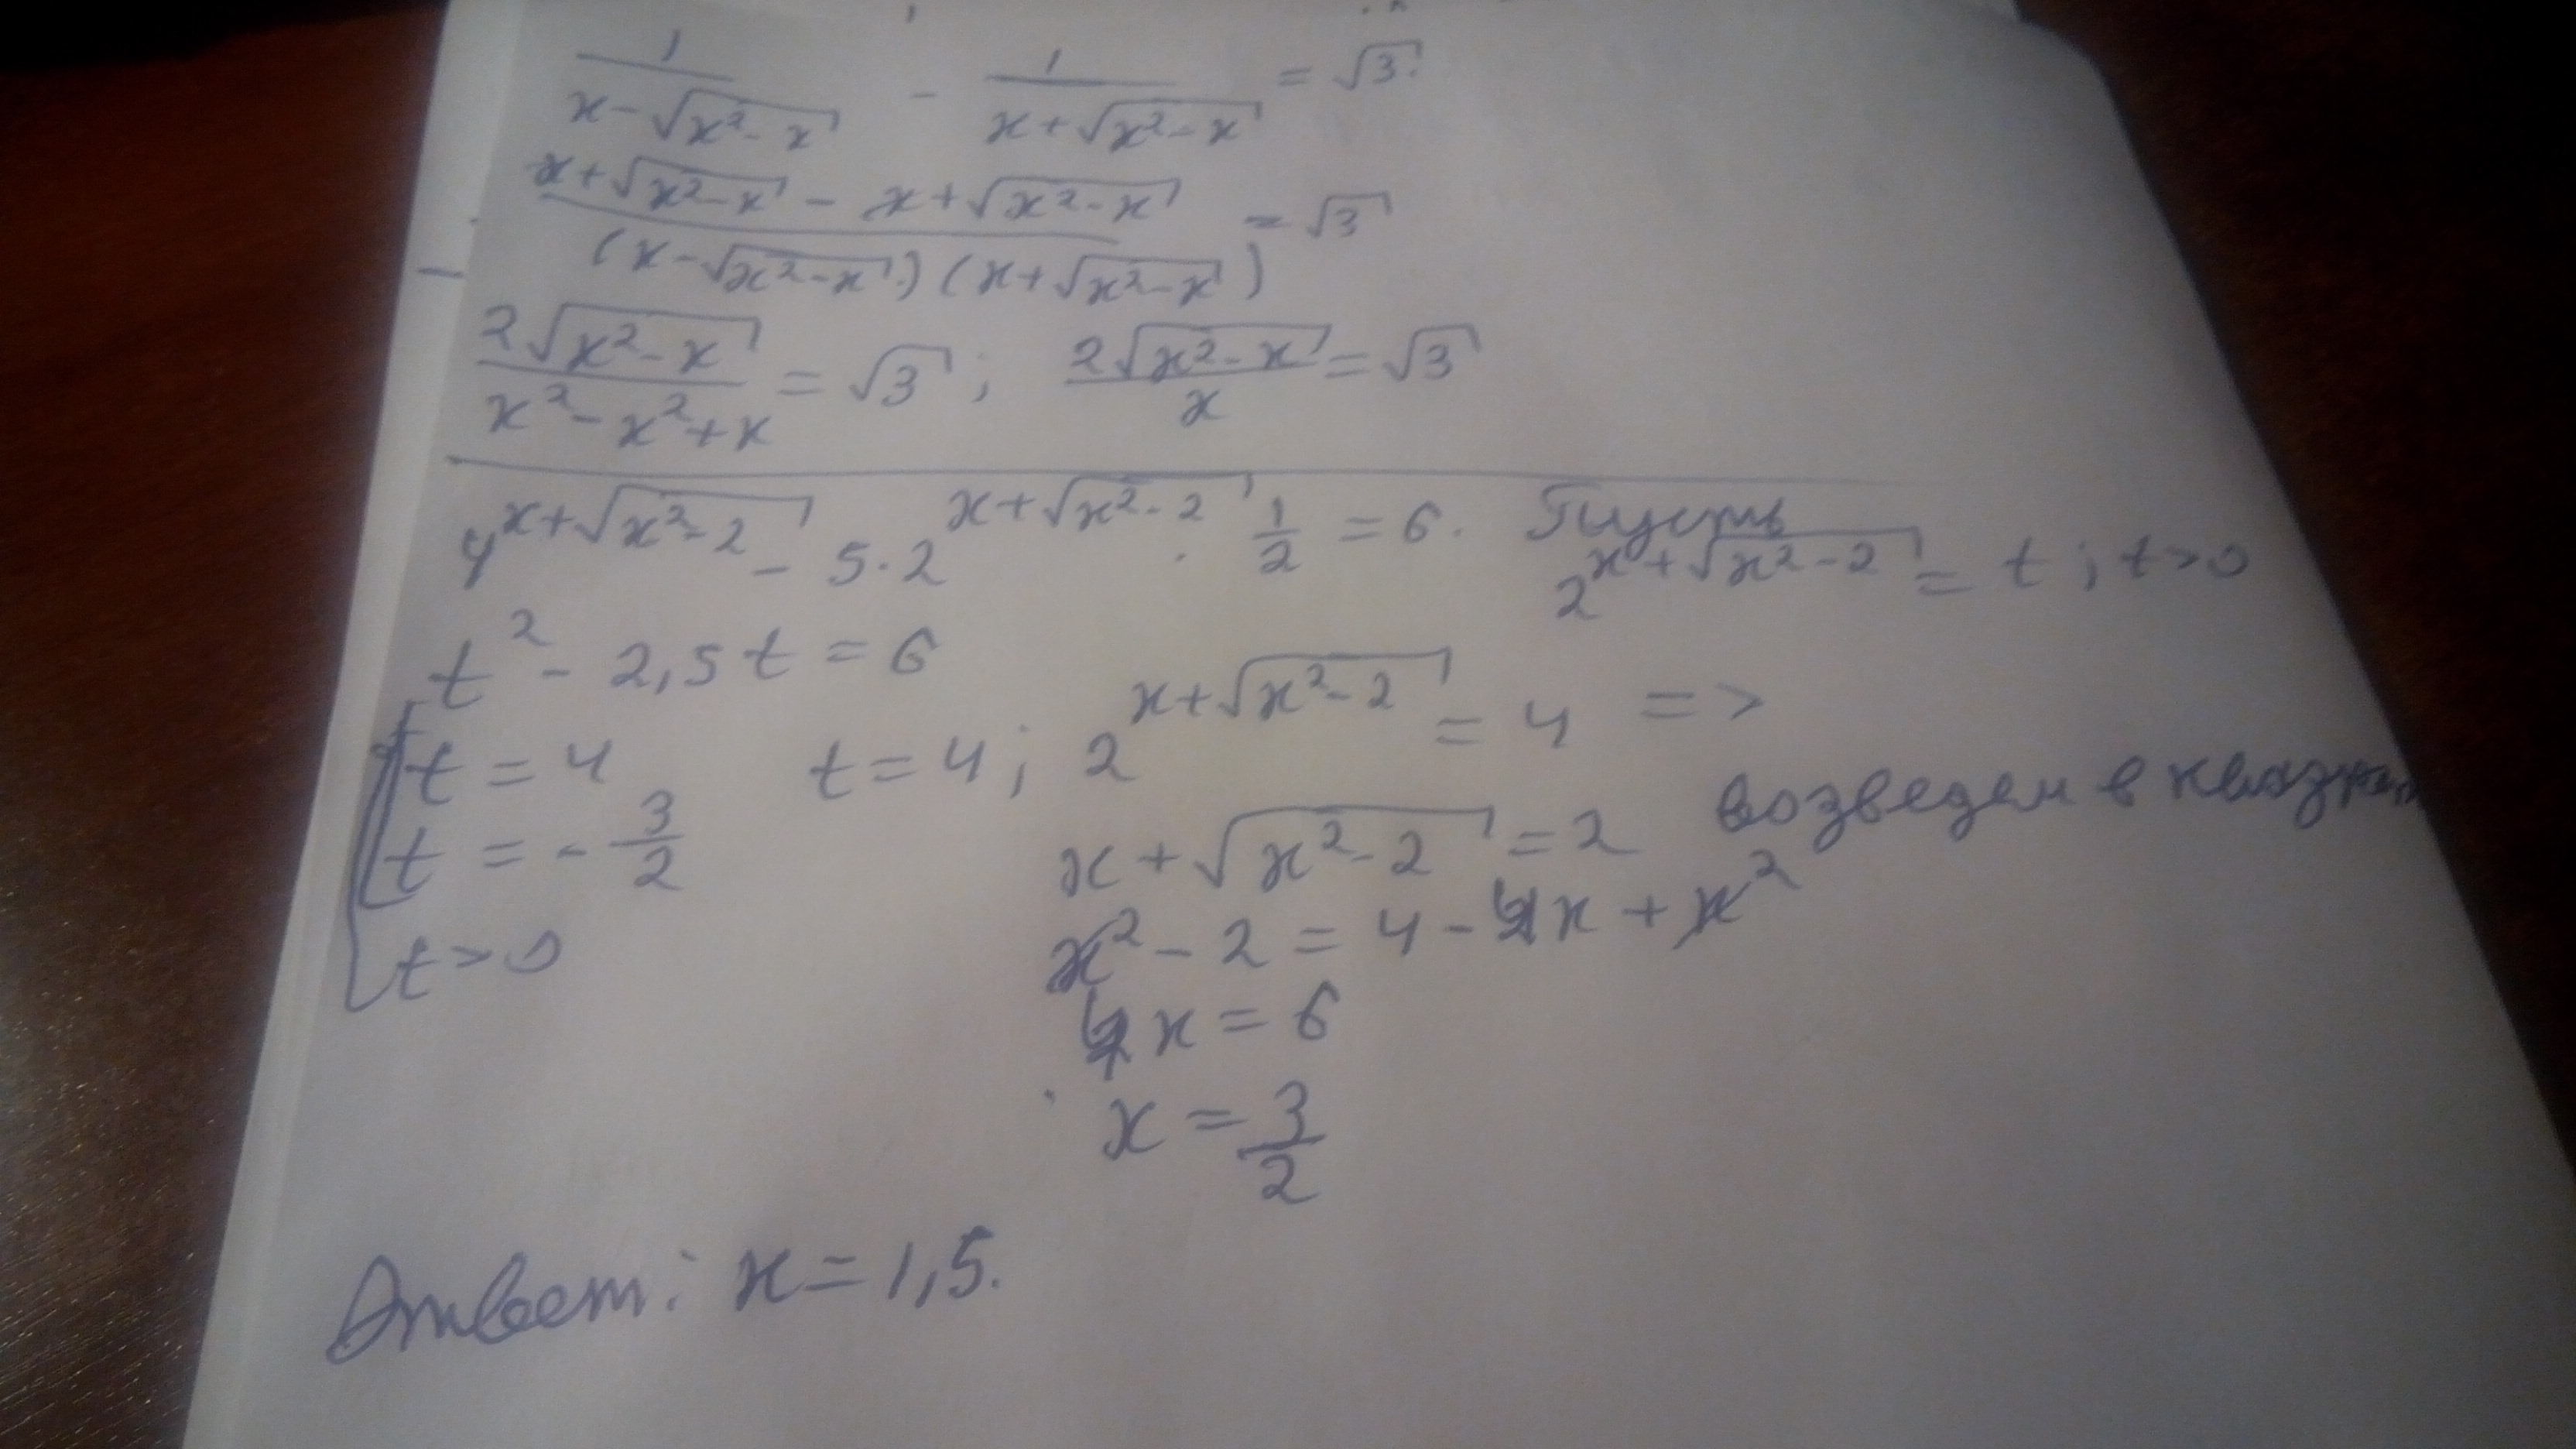 1/(x-√(x²-x)) - 1/(x+√(x²-x)) = √3.
(x+√(x²-x) - x+√(x²-x))/((x-√(x²-x))(x+√(x²-x))) = √3
2√(x²-x)/(x²-x²+x) = √3; 2√(x²-x)/x = √3
4^(x+√(x²-2)) - 5·2^(x+√(x²-2)) · 1/2 = 6. Пусть 2^(x+√(x²-2)) = t; t>0
t² - 2,5t = 6
t = 4 t = 4; 2^(x+√(x²-2)) = 4 =>
t = -3/2 x+√(x²-2) = 2 возведем в квадрат
t>0 x²-2 = 4-4x+x²
4x = 6
x = 3/2
Ответ: x=1,5.